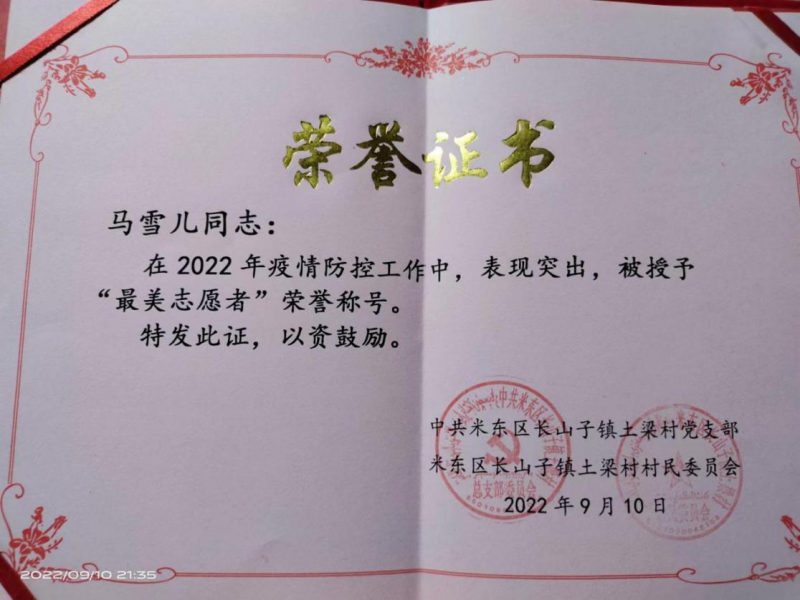 荣誉证书
马雪儿同志：
在 2022 年疫情防控工作中，表现突出，被授予
“最美志愿者”荣誉称号。
特发此证，以资鼓励。
中共米东区长山子镇土梁村党支部
米东区长山子镇土梁村村民委员会
2022 年 9 月 10 日
中共米东区长山子镇
总支部委员会
2022/09/10 21:35